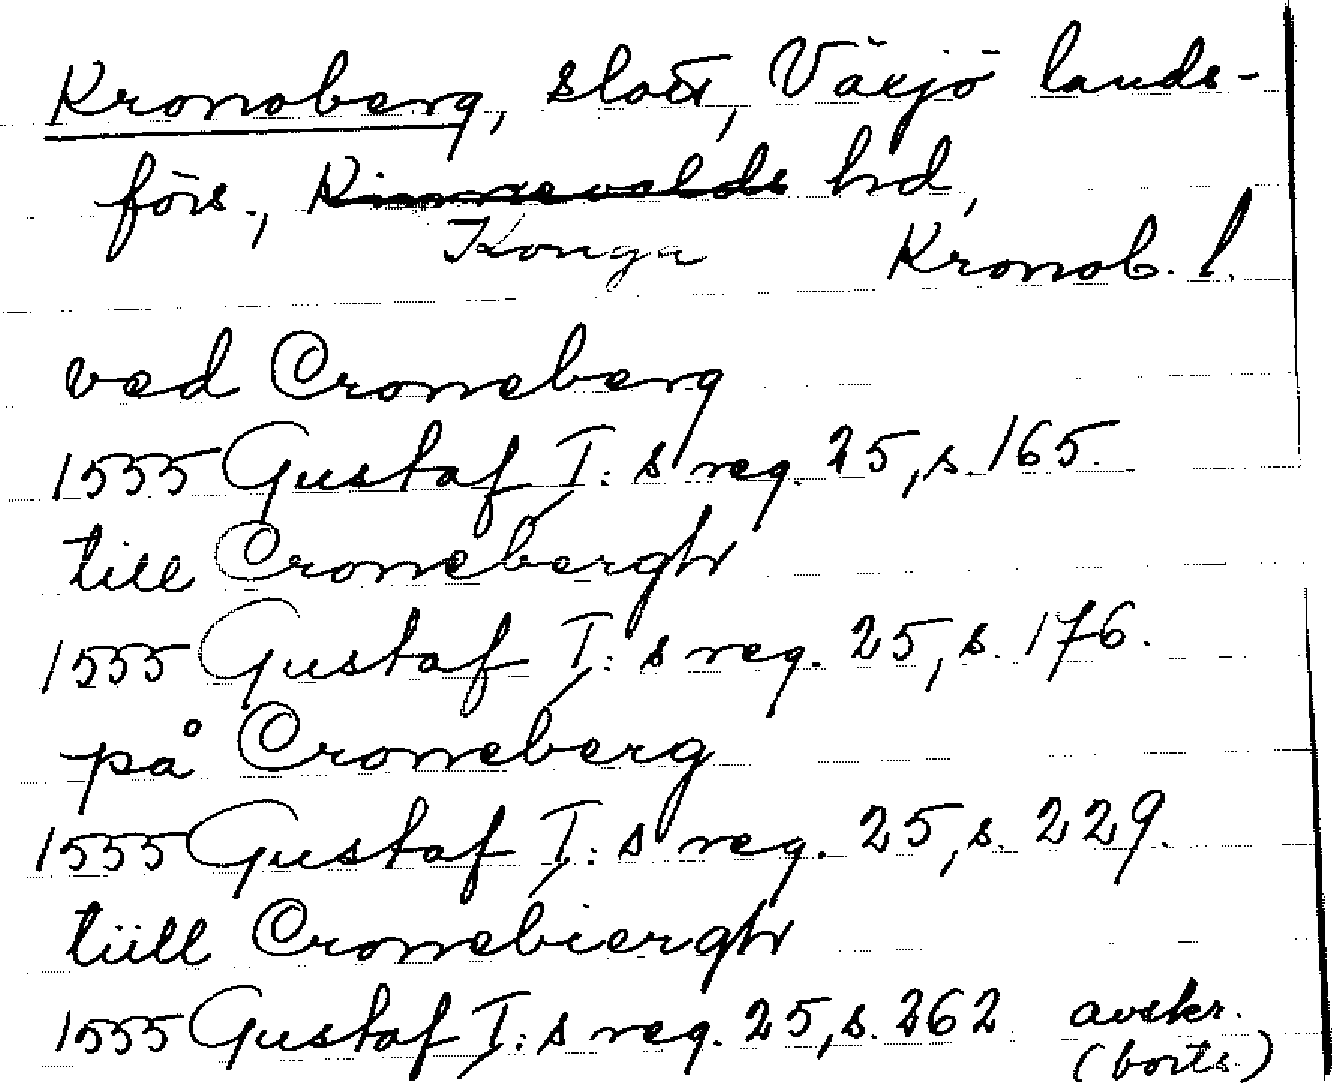 Kronoberg, slott, Växjö lands-
förs., Kinnevalds hd,
Konga Kronob. l.
ved Croneberg
1555 Gustaf I:s reg. 25, s. 165.
till Cronebergh
1555 Gustaf I:s reg. 25, s. 176.
på Croneberg
1555 Gustaf I:s reg. 25, s. 229.
tiill Cronebiergh
1555 Gustaf I:s reg. 25, s. 262 avskr.
(forts.)